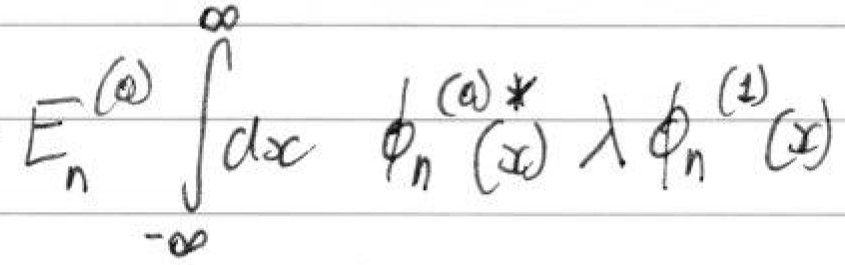 E_n^{(0)} \int_{-\infty}^{\infty} dx \phi_n^{(0)*}(x) \lambda \phi_n^{(1)}(x)